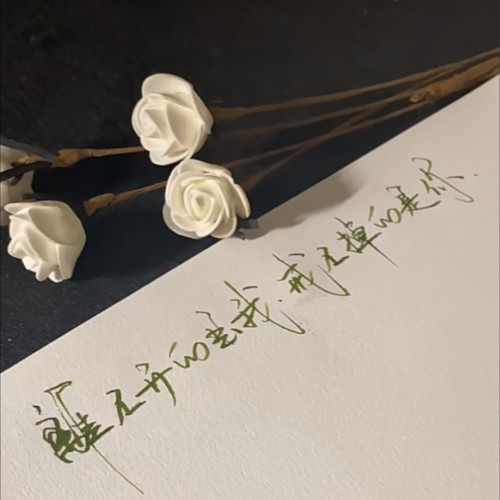 离不开的是我.戒不掉的是你.